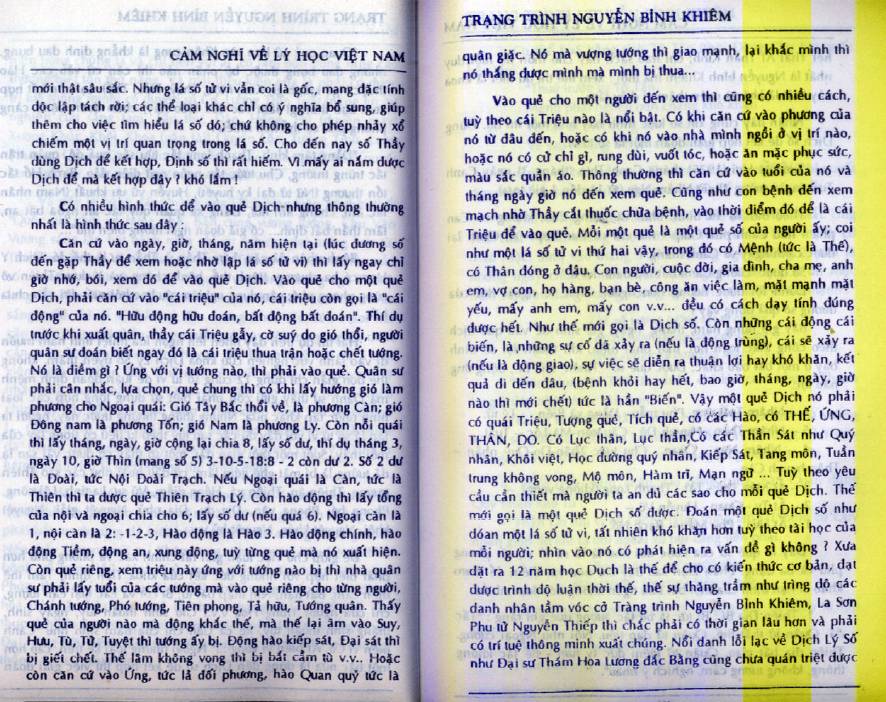 CẢM NGHĨ VỀ LÝ HỌC VIỆT NAM
mới thật sâu sắc. Nhưng lá số tử vi vẫn coi là gốc, mang đặc tính
độc lập tách rời; các thể loại khác chỉ có ý nghĩa bổ sung, giúp
thêm cho việc tìm hiểu lá số đó; chứ không cho phép nhảy xổ
chiếm một vị trí quan trọng trong lá số. Cho đến nay số Thầy
dùng Dịch để kết hợp, Định số thì rất hiếm. Vì mấy ai nắm được
Dịch để mà kết hợp đây ? khó lắm !
Có nhiều hình thức để vào quẻ Dịch nhưng thông thường
nhất là hình thức sau đây :
Căn cứ vào ngày, giờ, tháng, năm hiện tại (lúc đương số
đến gặp Thầy để xem hoặc nhờ lập lá số tử vi) thì lấy ngay chỉ
giờ nhớ, bói, xem đó để vào quẻ Dịch. Vào quẻ cho một quẻ
Dịch, phải căn cứ vào "cái triệu" của nó, cái triệu còn gọi là "cái
động" của nó. "Hữu động hữu đoán, bất động bất đoán". Thí dụ
trước khi xuất quân, thầy cái Triệu gẫy, cờ suý do gió thổi, người
quân sư đoán biết ngay đó là cái triệu thua trận hoặc chết tướng.
Nó là điềm gì ? Ứng với vị tướng nào, thì phải vào quẻ. Quân sư
phải cân nhắc, lựa chọn, quẻ chung thì có khi lấy hướng gió làm
phương cho Ngoại quái: Gió Tây Bắc thổi về, là phương Càn; gió
Đông nam là phương Tốn; gió Nam là phương Ly. Còn nỗi quái
thì lấy tháng, ngày, giờ cộng lại chia 8, lấy số dư, thí dụ tháng 3,
ngày 10, giờ Thìn (mang số 5) 3-10-5-18:8 - 2 còn dư 2. Số 2 dư
là Đoài, tức Nội Đoài Trạch. Nếu Ngoại quái là Càn, tức là
Thiên thì ta được quẻ Thiên Trạch Lý. Còn hào động thì lấy tổng
của nội và ngoại chia cho 6; lấy số dư (nếu quá 6). Ngoại càn là
1, nội càn là 2: -1-2-3, Hào động là Hào 3. Hào động chính, hào
động Tiềm, động an, xung động, tuỳ từng quẻ mà nó xuất hiện.
Còn quẻ riêng, xem triệu này ứng với tướng nào bị thì nhà quân
sư phải lấy tuổi của các tướng mà vào quẻ riêng cho từng người,
Chánh tướng, Phó tướng, Tiên phong, Tả hữu, Tướng quân. Thấy
quẻ của người nào mà động khắc thế, mà thế lại âm vào Suy,
Hưu, Tù, Tử, Tuyệt thì tướng ấy bị. Động hào kiếp sát, Đại sát thì
bị giết chết. Thế lâm không vong thì bị bắt cầm tù v.v.. Hoặc
còn căn cứ vào Ứng, tức là đối phương, hào Quan quỷ tức là
TRẠNG TRÌNH NGUYỄN BỈNH KHIÊM
quân giặc. Nó mà vượng tướng thì giao mạnh, lại khắc mình thì
nó thắng được mình mà mình bị thua...
Vào quẻ cho một người đến xem thì cũng có nhiều cách,
tuỳ theo cái Triệu nào là nổi bật. Có khi căn cứ vào phương của
nó từ đâu đến, hoặc có khi nó vào nhà mình ngồi ở vị trí nào,
hoặc nó có cử chỉ gì, rung đùi, vuốt tóc, hoặc ăn mặc phục sức,
màu sắc quần áo. Thông thường thì căn cứ vào tuổi của nó và
tháng ngày giờ nó đến xem quẻ. Cũng như con bệnh đến xem
mạch nhờ Thầy cắt thuốc chữa bệnh, vào thời điểm đó để là cái
Triệu để vào quẻ. Mỗi một quẻ là một quẻ số của người ấy; coi
như một lá số tử vi thứ hai vậy, trong đó có Mệnh (tức là Thế),
có Thân đóng ở đâu. Con người, cuộc đời, gia đình, cha mẹ, anh
em, vợ con, họ hàng, bạn bè, công ăn việc làm, mặt mạnh mặt
yếu, mấy anh em, mấy con v.v... đều có cách dạy tính đúng
được hết. Như thế mới gọi là Dịch số. Còn những cái động cái
biến, là những sự cố đã xảy ra (nếu là động trùng), cái sẽ xảy ra
(nếu là động giao), sự việc sẽ diễn ra thuận lợi hay khó khăn, kết
quả đi đến đâu, (bệnh khỏi hay hết, bao giờ, tháng, ngày, giờ
nào thì mới chết) tức là hần "Biến". Vậy một quẻ Dịch nó phải
có quái Triệu, Tượng quẻ, Tích quẻ, có các Hào, có THẾ, ỨNG,
THÂN, DO. Có Lục thân, Lục thần,Có các Thần Sát như Quý
nhân, Khôi việt, Học đường quý nhân, Kiếp Sát, Tang môn, Tuần
trung không vong, Mộ môn, Hàm trì, Mạn ngữ ... Tuỳ theo yêu
cầu cần thiết mà người ta an đủ các sao cho mỗi quẻ Dịch. Thế
mới gọi là một quẻ Dịch số được. Đoán một quẻ Dịch số như
dóan một lá số tử vi, tất nhiên khó khăn hơn tuỳ theo tài học của
mỗi người; nhìn vào nó có phát hiện ra vấn đề gì không ? Xưa
đặt ra 12 năm học Duch là thế để cho có kiến thức cơ bản, đạt
được trình độ luận thời thế, thế sự thăng trầm như trình độ các
danh nhân tầm vóc cở Tràng trình Nguyễn Bỉnh Khiêm, La Sơn
Phu tử Nguyễn Thiếp thì chắc phải có thời gian lâu hơn và phải
có trí tuệ thông minh xuất chúng. Nổi danh lỗi lạc về Dịch Lý Số
như Đại sư Thám Hoa Lương đắc Bằng cũng chưa quán triệt được